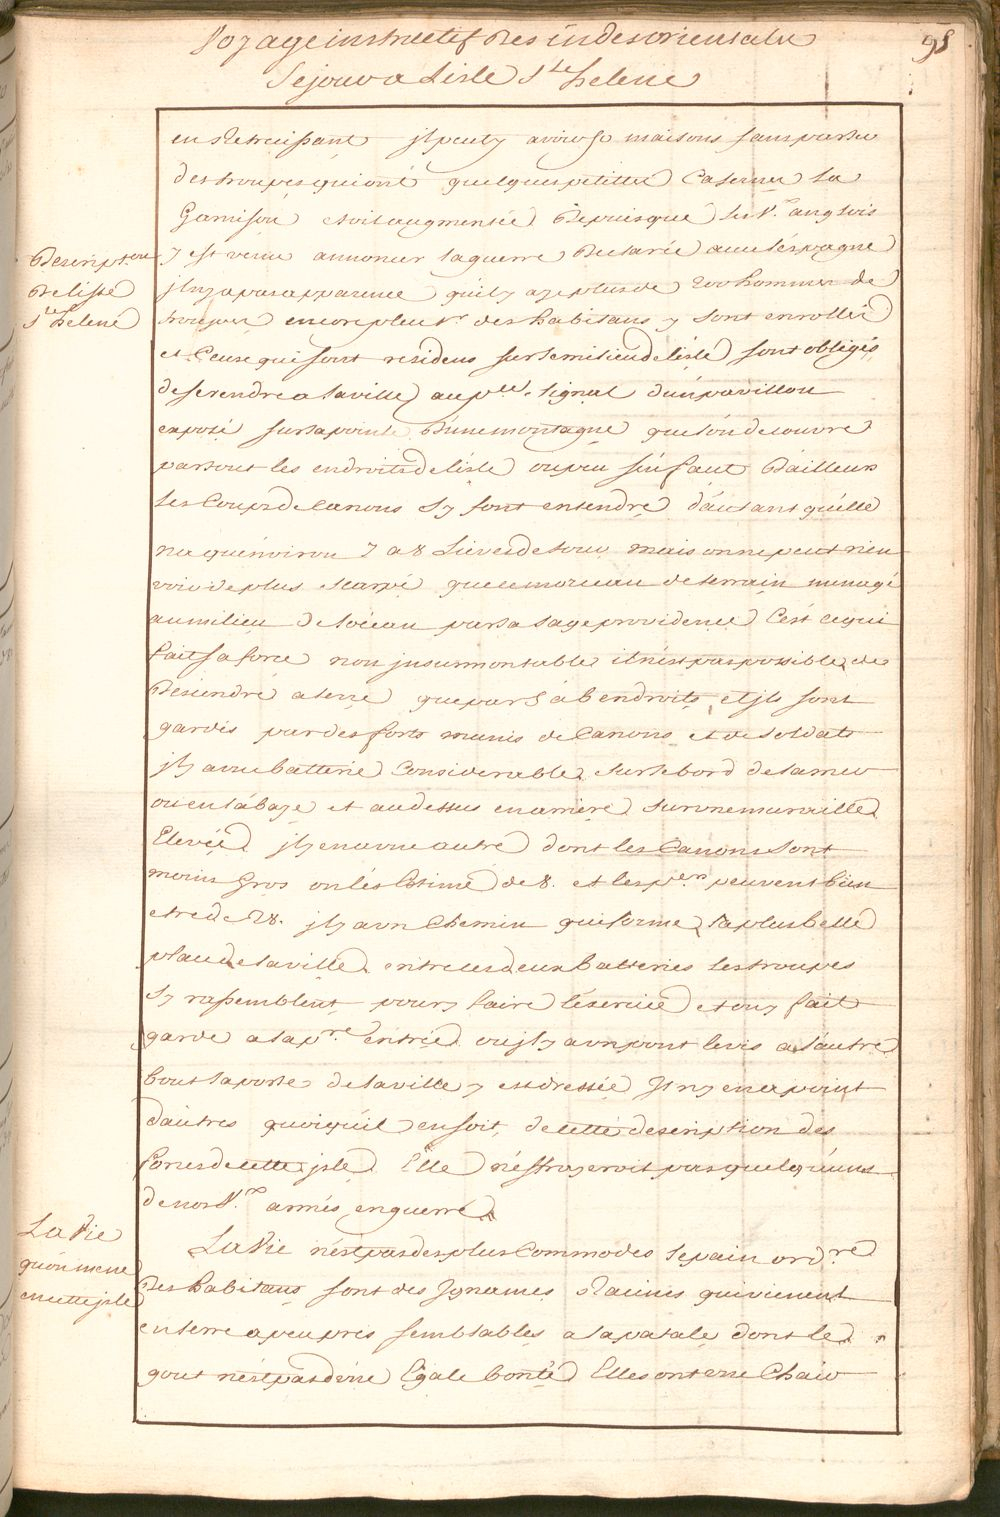 Voyage instructif Des indes orientale
Sejour a Lisle Ste helene
98
en Retraissant jl peut y avoir 50 maisons sans parler
des troupes qui ont quelques petittes Casernes La
Garnison etoit augmentée Depuis que les Vr. anglois
Description
De lisle
Ste helene
y est venu annoncer la guerre Declarée avec lespagne
jl ny a pas apparence quil y aye plus de 200 hommes de
trouppes encore pleusrs. des habitans y sont enrollés
et Ceux qui sont residens sur le milieu de lisle sont obligés
de se rendre a la ville au pr. signal dun pavillon
exposé sur la pointe Dune montagne que lon decouvre
partout les endroits de lisle ou peu sen faut Dailleurs
les Coups de Canons s'y font entendre d'autant qu'elle
na quenviron 7 a 8 Lieües de tour mais on ne peut rien
voir de plus Escarpé que ce morceau de terrain menagé
au milieu de loceau par sa sage providence C'est ce qui
fait sa force non jnsurmontable il n'est pas possible de
Desendre a terre que par 5 à 6 endroits et jls sont
gardés par des forts munis de Canons et de soldats
jl y a une batterie Considerable sur le bord de la mer
ou en la baye et au dessus en arriere sur une muraille
Elevée jl y en a une autre dont les Canons sont
moins Gros on les Estime de 8. et les prers peuvent bien
etre de 28. jl y a un Chemin qui forme la plus belle
place de la ville entre ces deux batteries les troupes
s'y rassemblent pour y faire l'exercice et on y fait
garde a la pre. entrée ou jl y a un pont levis a lautre
bout la porte de la ville y est dressée Jl n'y en a point
dautres quoiquil en soit de cette description des
forces de cette jsle Elle n'effrayeroit pas quelqu'uns
de nos Vx. armés en guerre
La Vie
qu'on mene
en cette jsle
La Vie n'est pas des plus Commodes le pain ordre.
Des habitans sont des Jgnames Racines qui vienent
en terre a peu pres semblables a la patate dont le
gout n'est pas d'une Egale bonté Elles ont une Chair